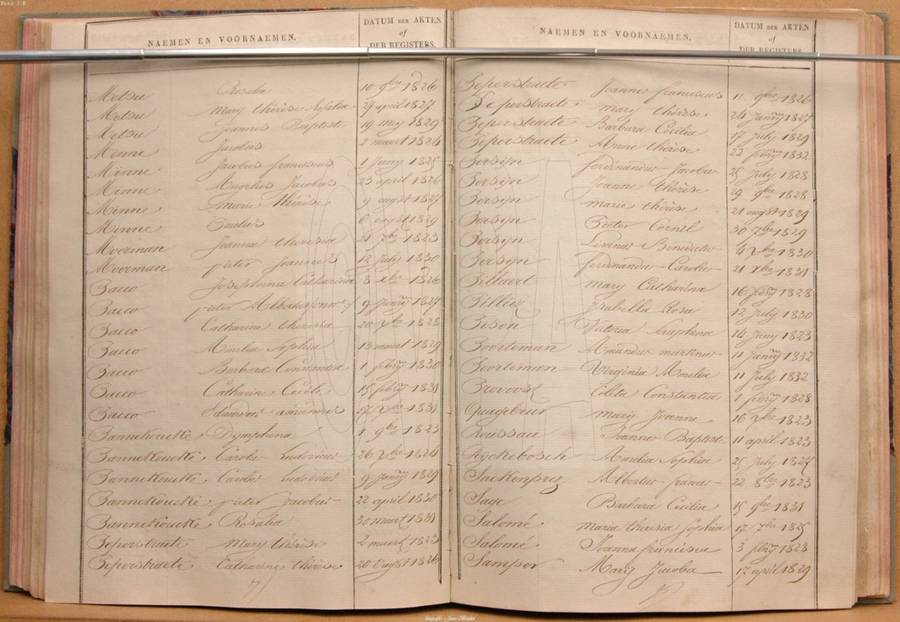 NAEMEN EN VOORNAEMEN.
DATUM DER AKTEN
of
DER REGISTERS.
Metsu Rosalia 10 9bre 1826
Metsu Mary Thérèse Sophia 29 april 1827
Metsu Joannes Baptiste 19 mey 1829
Minne Jacobus 2 maart 1824
Minne Jacobus franciscus 1 Juny 1825
Minne Angelus Jacobus 23 april 1826
Minne Marie Thérèse 9 august 1827
Minne 6 august 1829
Moerman Joanna theresia 21 7bre 1823
Moerman pieter Joannes 12 July 1830
Pacco Josephina Catharina 8 xbre 1826
Pacco pieter Albertus 9 January 1827
Pacco Catharina theresia 1828
Pacco Amelia Sophia 13 maart 1829
Pacco Barbara Constantia 1 febry 1830
Pacco Catharina Cécile 15 febry 1831
Pacco 1831
Pannekoucke Dymphna 1 9bre 1823
Pannekoucke Carolus Ludovicus 26 xbre 1824
Pannekoucke Carolus Ludovicus 9 January 1829
Pannekoucke pieter Jacobus 22 april 1830
Pannekoucke Rosalia 30 maart 1831
Peperstraete Mary thérèse 2 maart 1823
Peperstraete Catharina thérèse 20 august 1826
NAEMEN EN VOORNAEMEN.
DATUM DER AKTEN
of
DER REGISTERS.
Peperstraete Joannes franciscus 11 9bre 1826
Peperstraete mary thérèse 24 January 1827
Peperstraete Barbara Cécilia 17 July 1829
Peperstraete Anne thérèse 22 febry 1832
Persyn ferdinandus Jacobus 25 July 1828
Persyn Joanne thérèse 29 9bre 1828
Persyn marie thérèse 21 august 1829
Persyn Pieter Cornel 30 7bre 1829
Persyn Livinus Benedictus 4 xbre 1830
Persyn ferdinandus Carolus 21 xbre 1831
Pillaert Mary Catharina 16 febry 1828
Pilliez Isabella Rosa 12 July 1830
Pison Victoria Seraphina 14 Juny 1823
Poorteman Amandus martinus 11 January 1832
Poorteman Virginia Amelia 11 July 1832
Prevost Coleta Constantia 1 febry 1828
Quaghebeur Mary Joanne 16 xbre 1823
Rousseau Joannes Baptiste 11 april 1823
Ryckebosch Amelia Sophia 25 July 1827
Sackenprez Albertus francis 22 8bre 1823
Sage Barbara Cécilia 15 9bre 1831
Salomé maria theresia Sophia 17 7bre 1825
Salomé Joanna francisca 3 febry 1828
Samper Mary Jacoba 17 april 1829